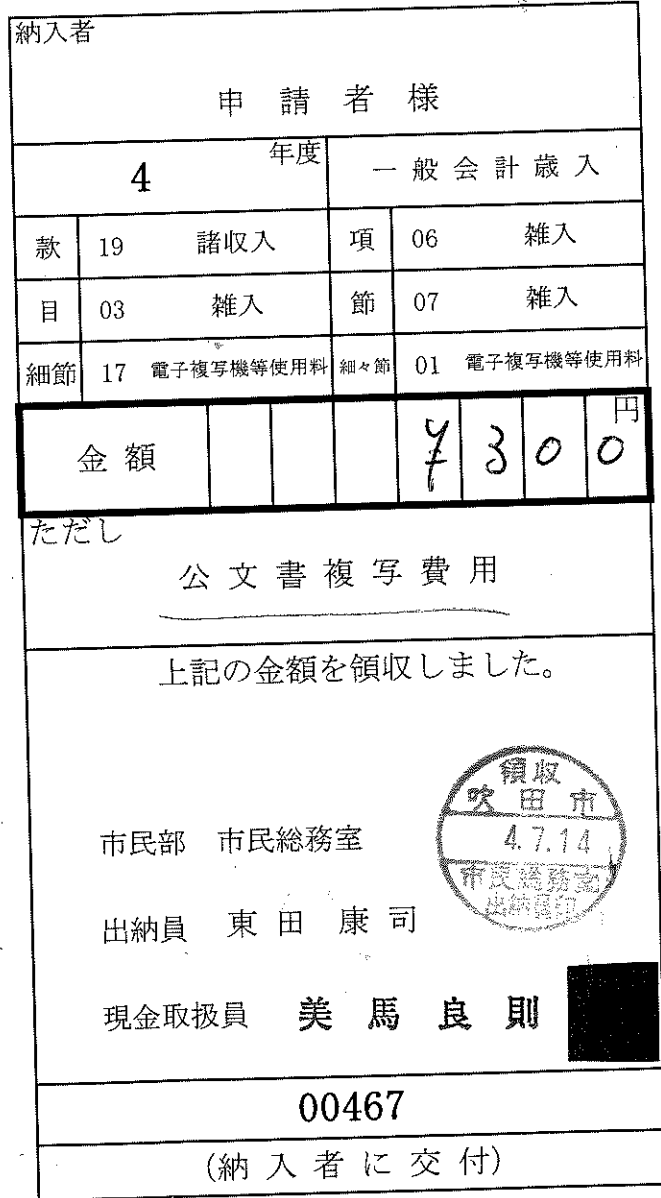 納入者
申請者様
4 年度 一般会計歳入
款 19 諸収入 項 06 雑入
目 03 雑入 節 07 雑入
細節 17 電子複写機等使用料 細々節 01 電子複写機等使用料
金額 7300円
ただし
公文書複写費用
上記の金額を領収しました。
領収
吹田市
4.7.14
市民総務室
出納員印
市民部 市民総務室
出納員 東田康司
現金取扱員 美馬良則
00467
(納入者に交付)